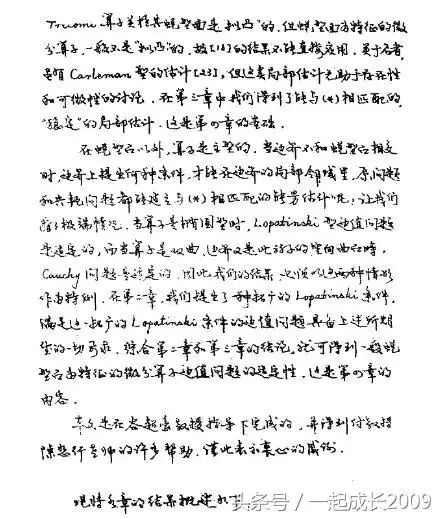 Tricomi 算子类于其蜕型面是"拟凸"的. 但蜕型面为特征的微
分算子, 一般不是"拟凸"的, 故[10]的结果不能直接应用. 关于后者,
虽有 Carleman 型的估计[23], 但这类局部估计只助于存在性
和可微性的讨论. 在第三章中我们得到了能与(*)相匹配的
"稳定"的局部估计. 这是第四章的基础.
在蜕型面以外, 算子是主型的. 当边界不和蜕型面相交
时, 边界上提出何种条件, 才能在边界的局部邻域里, 原问题
和共轭问题都能建立与(*)相匹配的能量估计呢? 让我们
看极端情况. 当算子是椭圆型时, Lopatinski 型边值问题
是适定的, 而当算子是双曲, 边界又是此算子的空间曲面时,
Cauchy 问题是适定的. 因此我们的结果必须以这两种情形
作为特例. 在第二章, 我们提出了一种推广的 Lopatinski 条件,
满足这一推广的 Lopatinski 条件的边值问题具备上述所期
望的一切要求. 综合第二章和第三章的结论, 就可得到一般蜕
型面为特征的微分算子边值问题的适定性. 这是第四章的
内容.
本文是在谷超豪教授指导下完成的, 并得到付教授
陈恕行老师的许多帮助, 谨此表示衷心的感谢.
现将各章的结果概述如下
头条号 / 一起成长2009